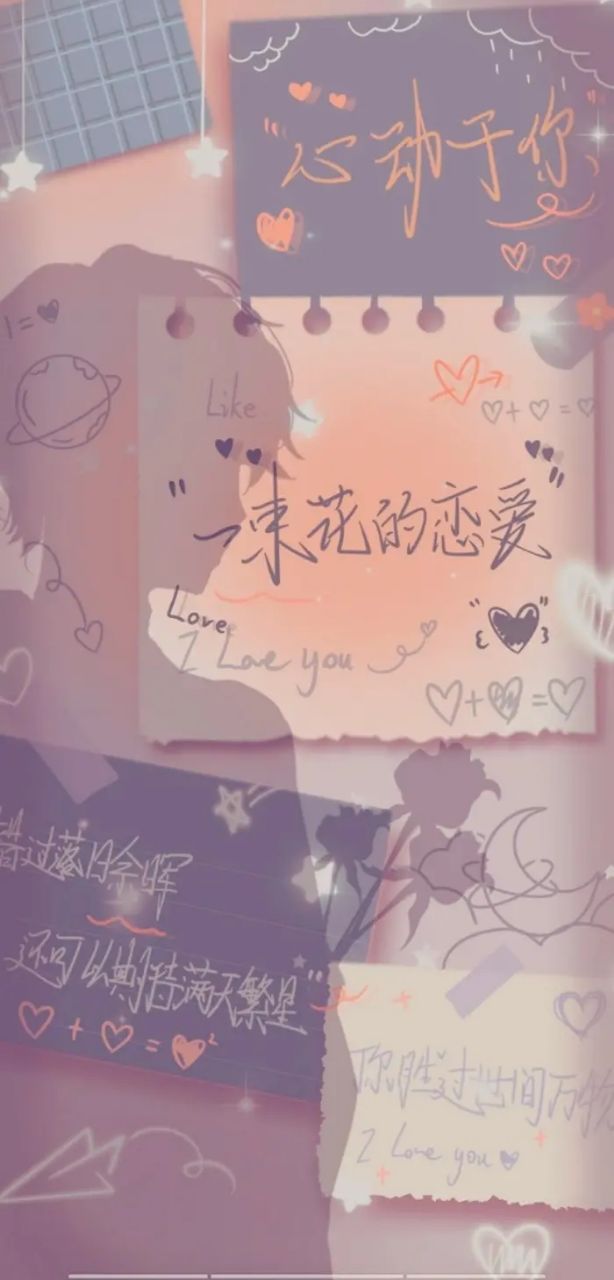 "心动于你"
1=♥
Like
♡+♡=♡
"一束花的恋爱"
Love
I Love you
♡+♡=♡
错过落日余晖
还可以期待满天繁星"
♡+♡=♡²
你胜过世间万物
I Love you♥